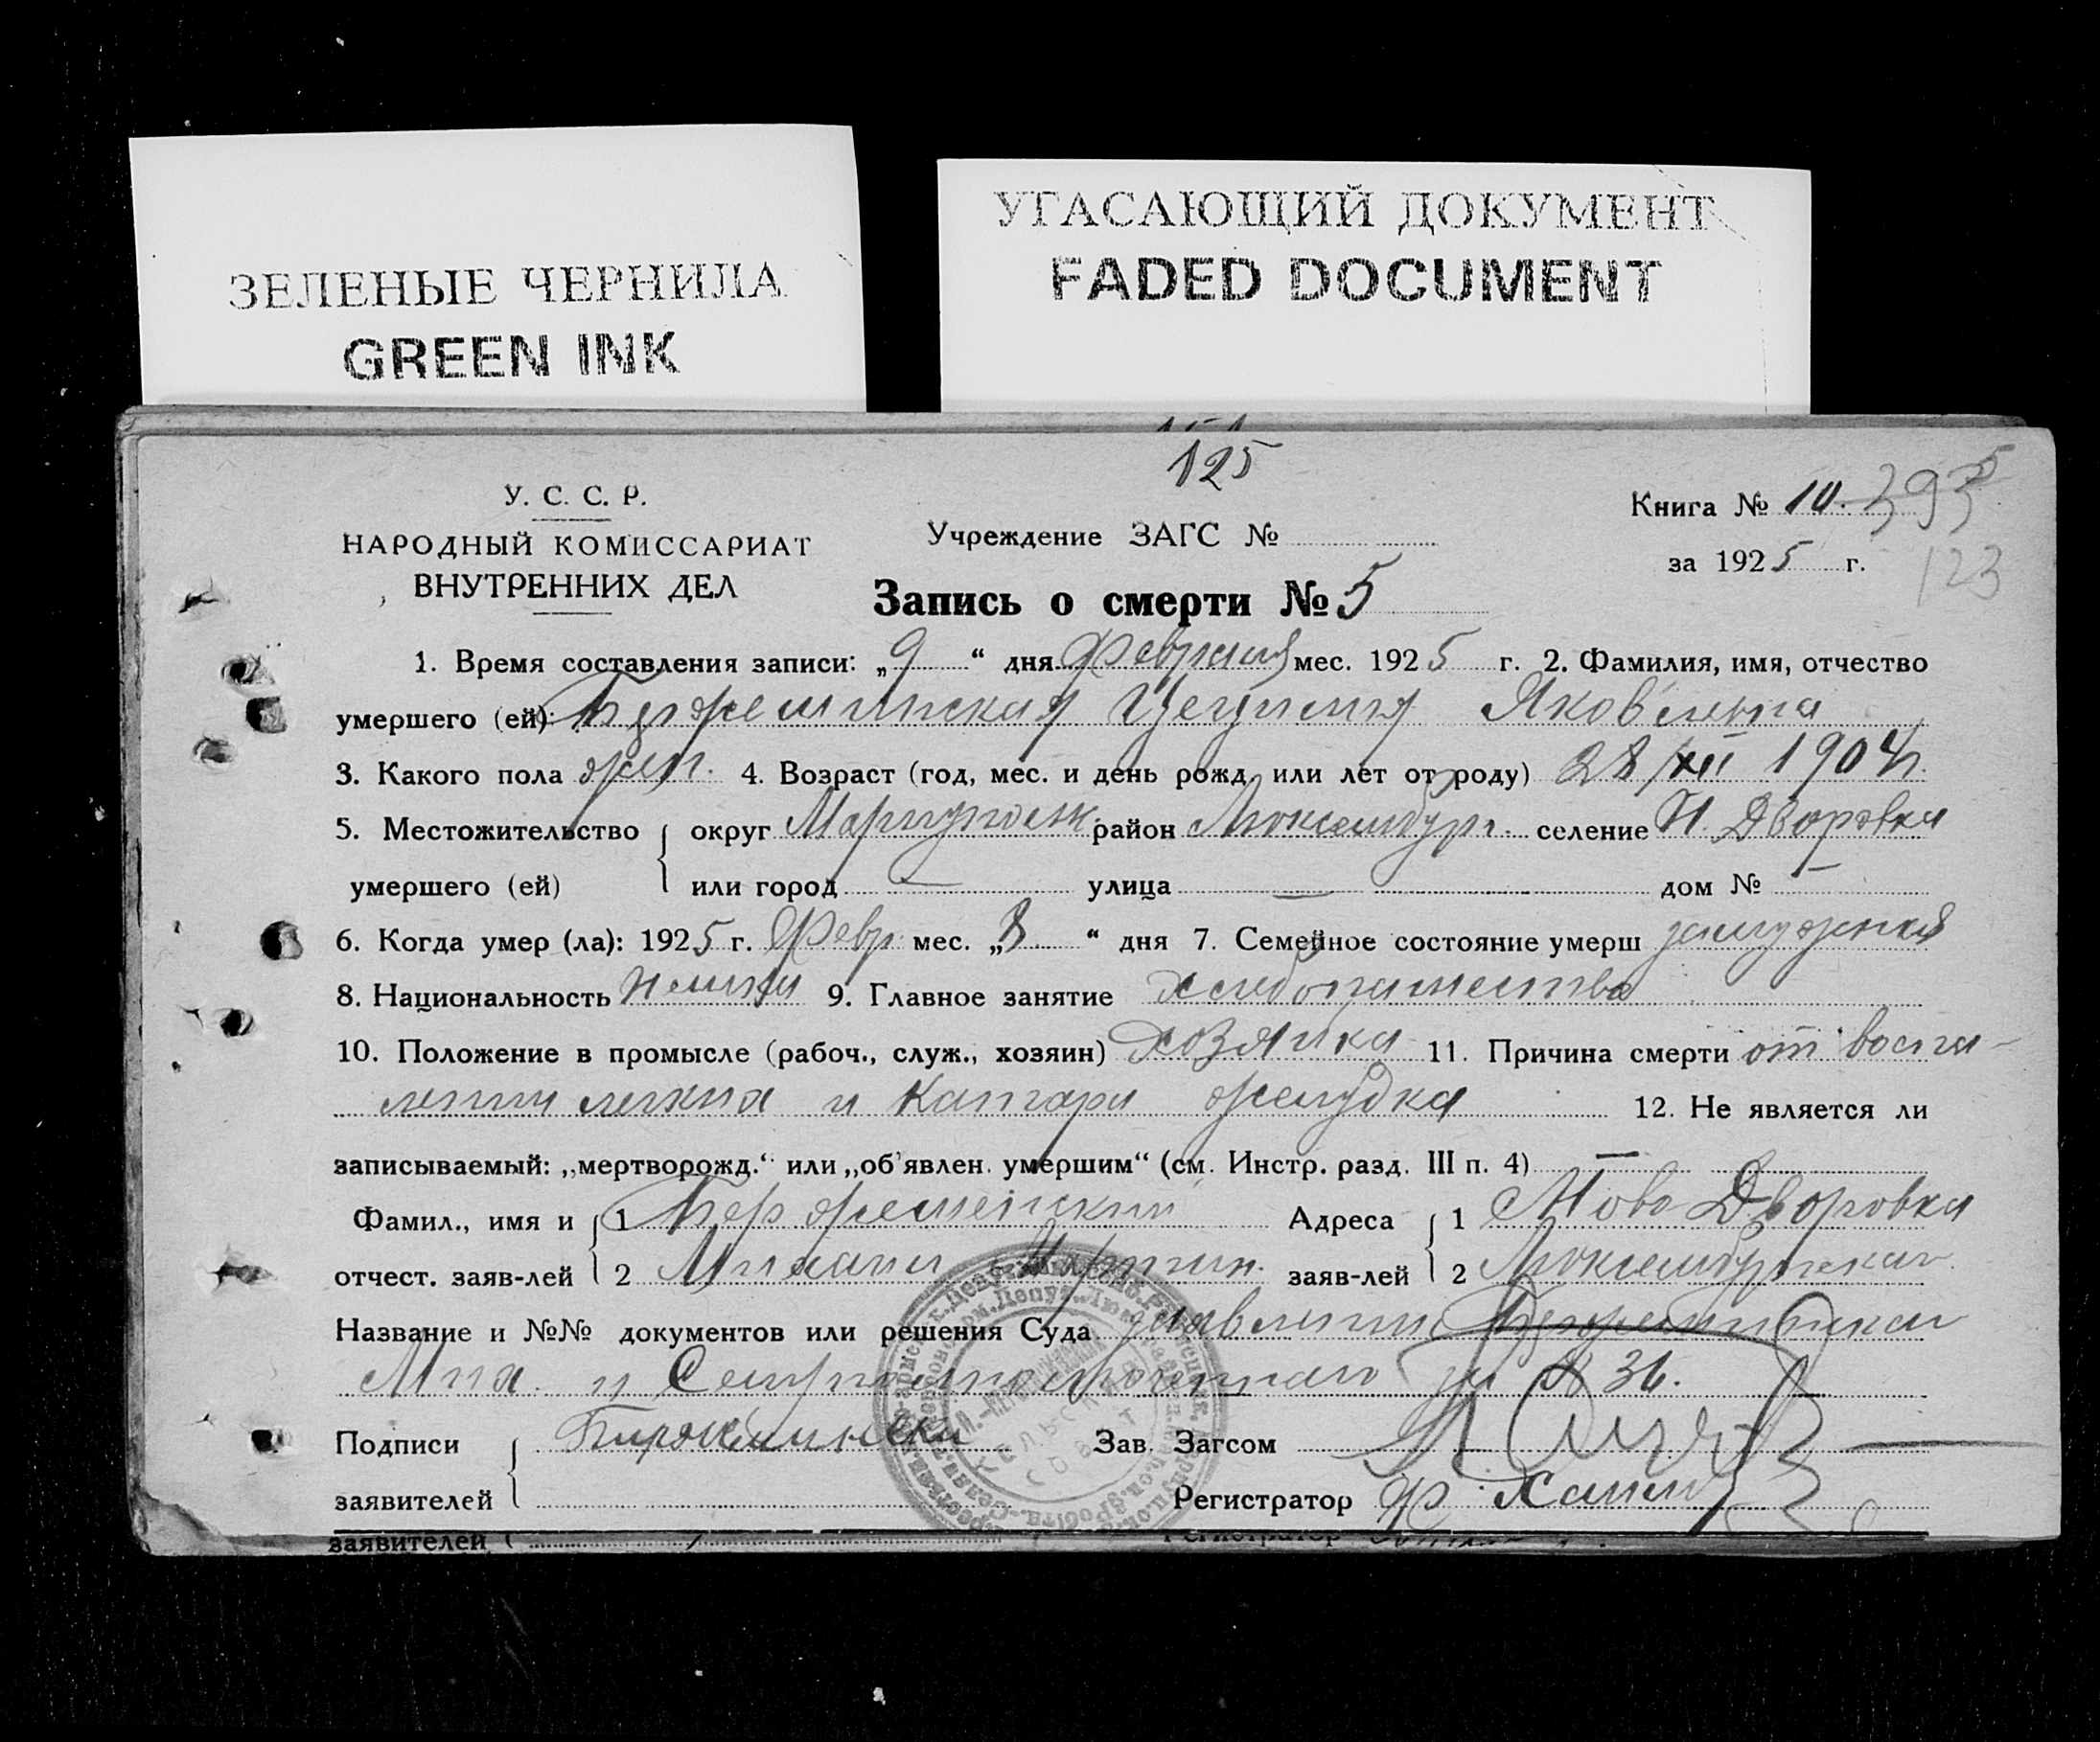 ЗЕЛЕНЫЕ ЧЕРНИЛА
GREEN INK
УГАСАЮЩИЙ ДОКУМЕНТ
FADED DOCUMENT
125
У. С. С. Р.
НАРОДНЫЙ КОМИССАРИАТ
ВНУТРЕННИХ ДЕЛ
Учреждение ЗАГС №
Книга № 10. 393
за 1925 г.
123
Запись о смерти № 5
1. Время составления записи: „9“ дня Февраля мес. 1925 г. 2. Фамилия, имя, отчество
умершего (ей): Цецилия Яковлевна
3. Какого пола жен. 4. Возраст (год, мес. и день рожд. или лет от роду) 28/XII 1904
5. Местожительство округ Мариупольск. район Люксембург. селение Н. Дворовка
умершего (ей) или город — улица — дом № —
6. Когда умер (ла): 1925 г. Февр. мес. „8“ дня 7. Семейное состояние умерш замужняя
8. Национальность немка 9. Главное занятие хлебопашество
10. Положение в промысле (рабоч., служ., хозяин) хозяйка 11. Причина смерти от воспа-
ления легких и Катара желудка 12. Не является ли
записываемый: „мертворожд.“ или „об'явлен. умершим“ (см. Инстр. разд. III п. 4) —
Фамил., имя и 1 Адреса 1 Ново Дворовка
отчест. заяв-лей 2 Михаил Мартин. заяв-лей 2 Люксембургского
Название и №№ документов или решения Суда заявлении
Мих. и за № 36.
Подписи Зав. Загсом
заявителей Регистратор Ф.
заявителей